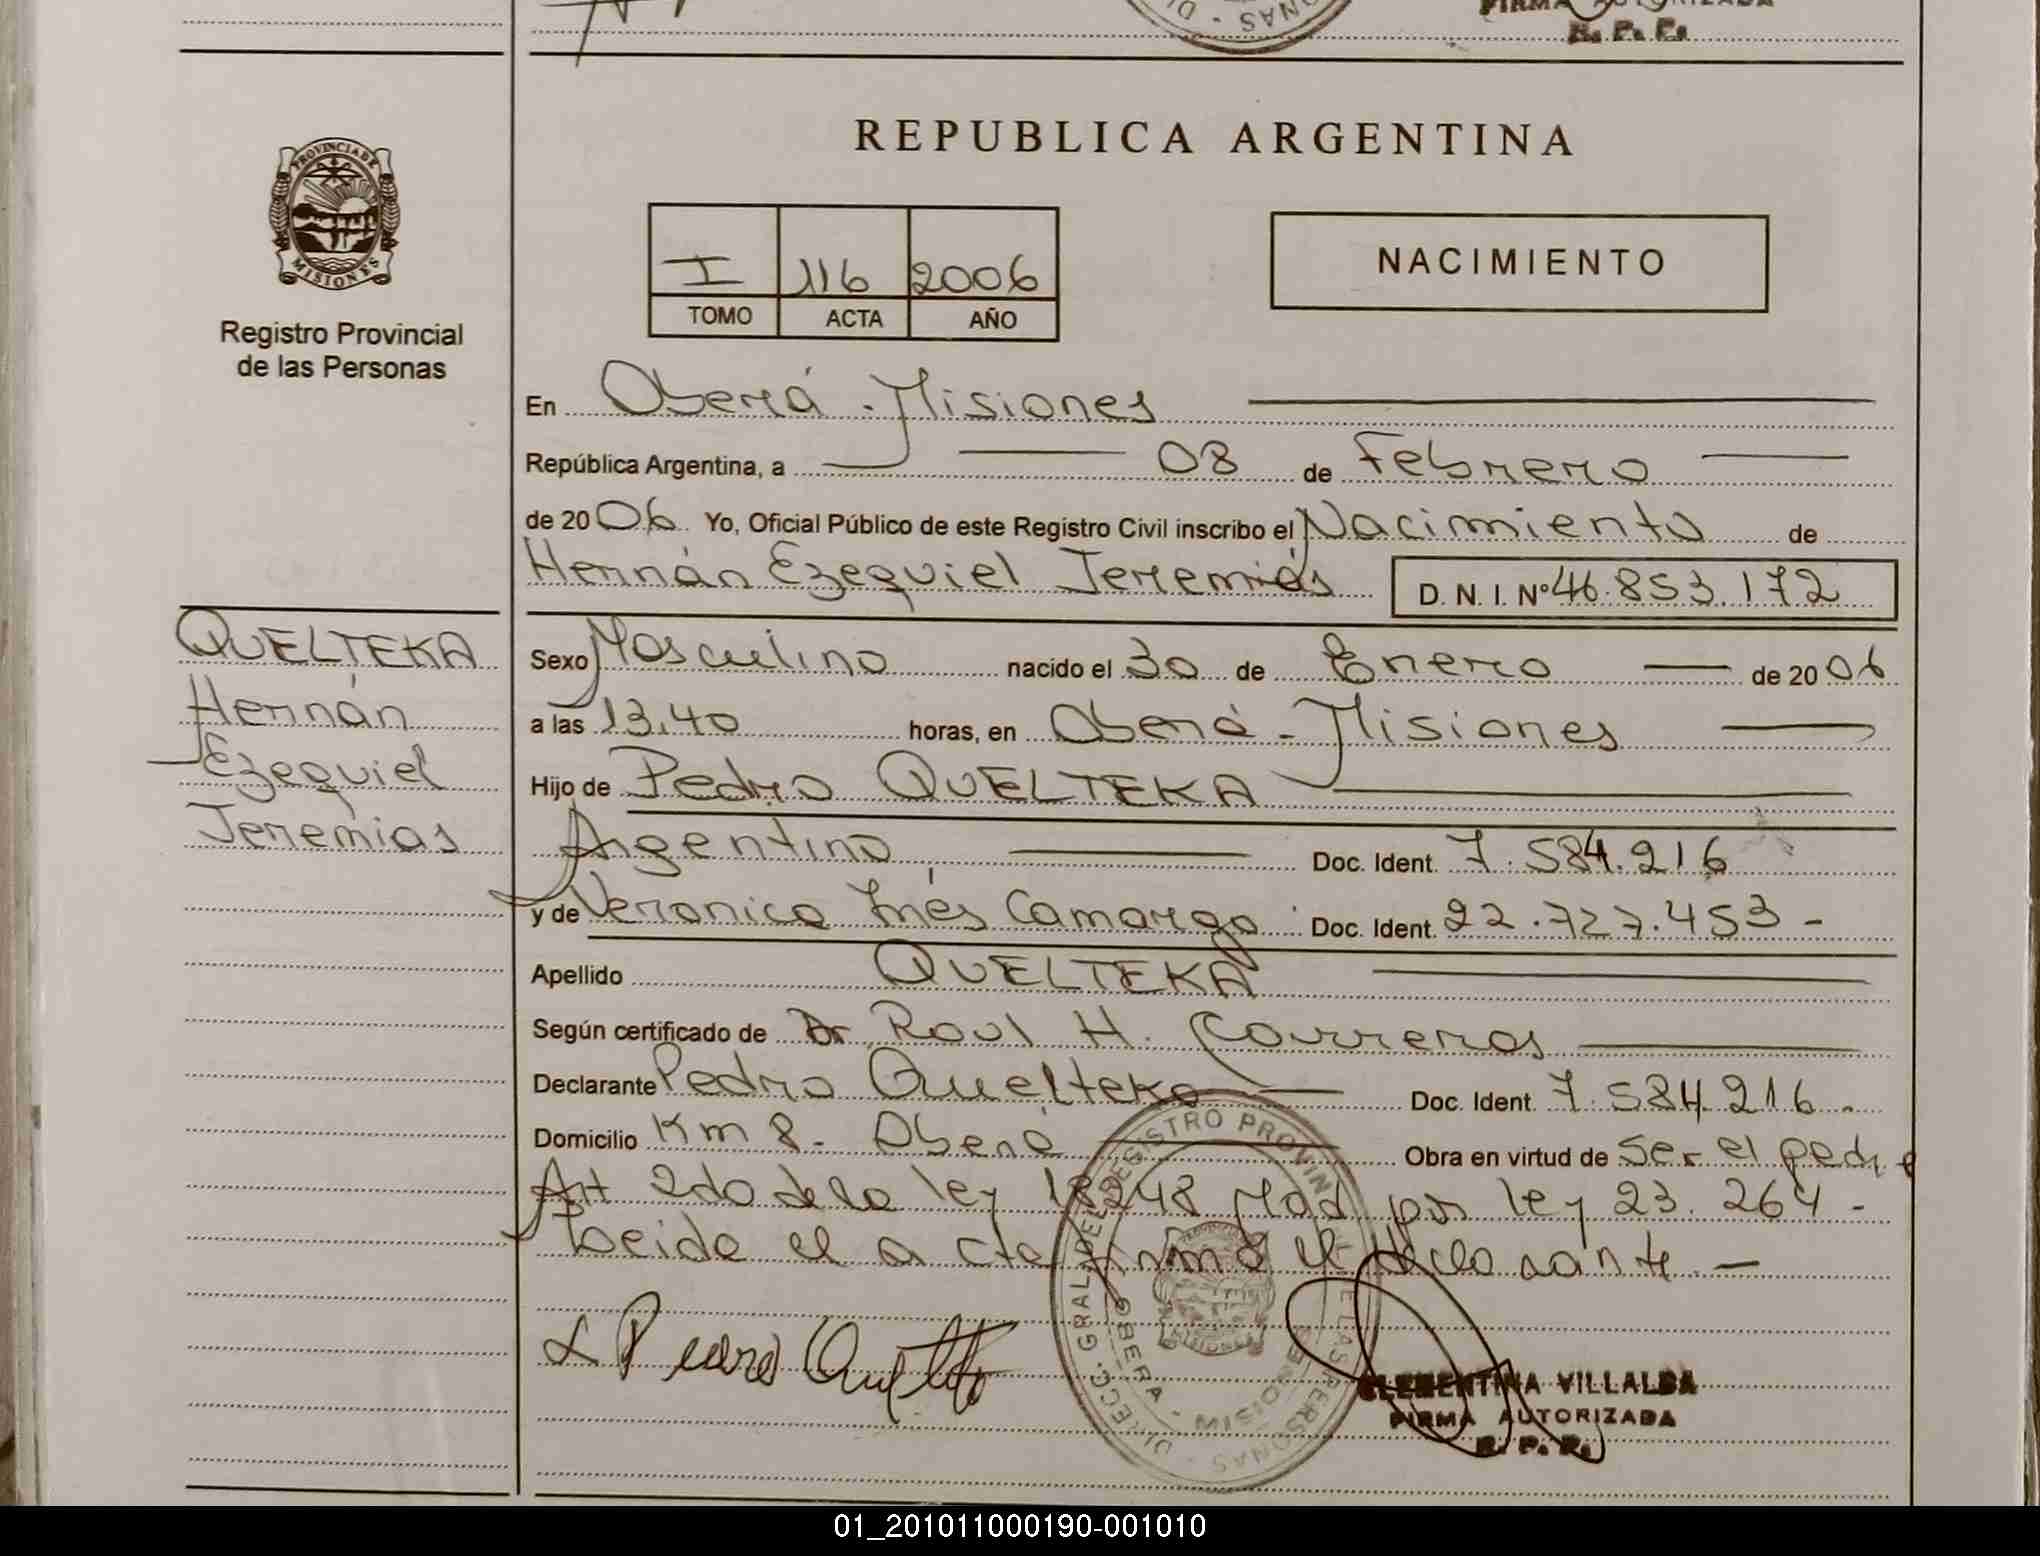 FIRMA AUTORIZADA
R. P. P.
REPUBLICA ARGENTINA
PROVINCIA DE
MISIONES
Registro Provincial
de las Personas
I 116 2006
TOMO ACTA AÑO
NACIMIENTO
En Oberá - Misiones
República Argentina, a 08 de Febrero
de 2006 Yo, Oficial Público de este Registro Civil inscribo el Nacimiento de
Hernán Ezequiel Jeremías D. N. I. Nº 46.853.172
QUELTEKA
Hernán
Ezequiel
Jeremias
Sexo Masculino nacido el 30 de Enero de 2006
a las 13,40 horas, en Oberá - Misiones
Hijo de Pedro QUELTEKA
Argentino Doc. Ident. 7.584.216
y de Veronica Inés Camargo Doc. Ident. 22.727.453 -
Apellido QUELTEKA
Según certificado de Dr Raul H. Carreras
Declarante Pedro Quelteka Doc. Ident. 7.584.216.
Domicilio Km 8 - Oberá Obra en virtud de Ser el padre
Art 2do de la ley 18248 Mod por ley 23.264 -
Leida el acta firmó el declarante. -
Pedro Quelte
DIRECC. GRAL. DEL REGISTRO PROVINCIAL DE LAS PERSONAS
OBERA - MISIONES
CLEMENTINA VILLALBA
FIRMA AUTORIZADA
R. P. P.
01_201011000190-001010